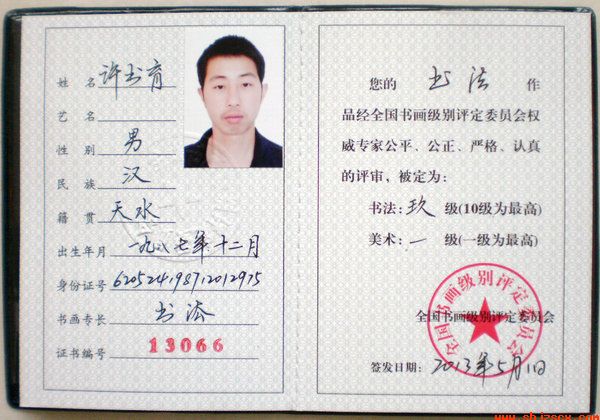 姓名 许书育
艺名
性别 男
民族 汉
籍贯 天水
出生年月 一九八七年十二月
身份证号 620524198712012975
书画专长 书法
证书编号 13066
您的 书法 作
品经全国书画级别评定委员会权
威专家公平、公正、严格、认真
的评审，被定为：
书法：玖 级(10级为最高)
美术：一 级(一级为最高)
全国书画级别评定委员会
全国书画级别评定委员会
签发日期：2013年5月1日